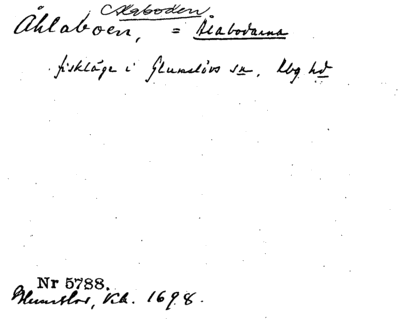 Ålaboden
Åhlaboen, = Ålabodarna
fiskläge i Glumslövs sn, Rbg hd
Nr 5788.
Glumslöv, Kb. 1698.